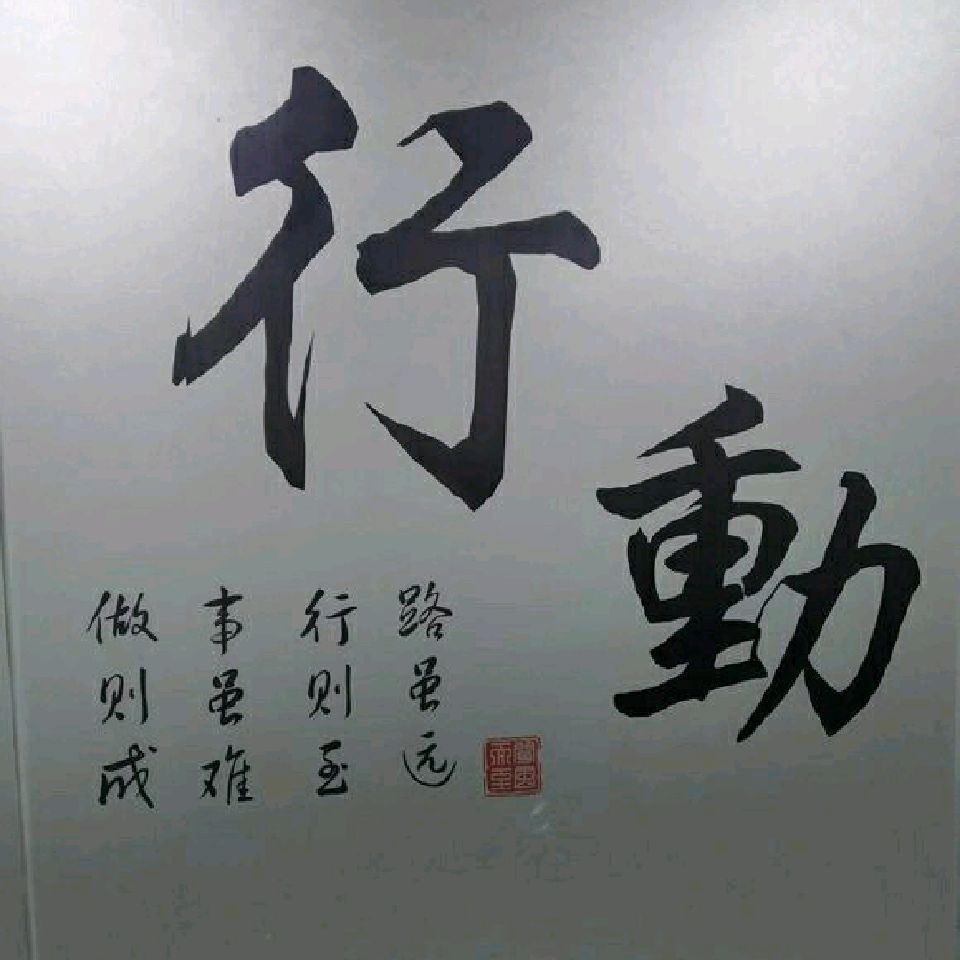 行動
路虽远
行则至
事虽难
做则成